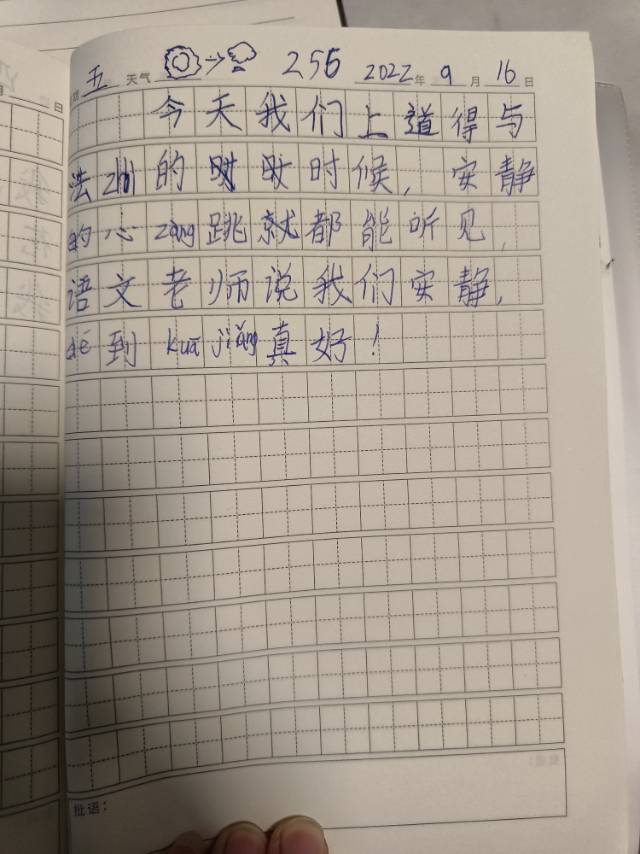 五 天气 256 2022年 9月 16日
今天我们上道得与
法zhì的时候，安静
的心zàng跳就都能听见，
语文老师说我们安静，
dé到kuā jiǎng真好！
批语：